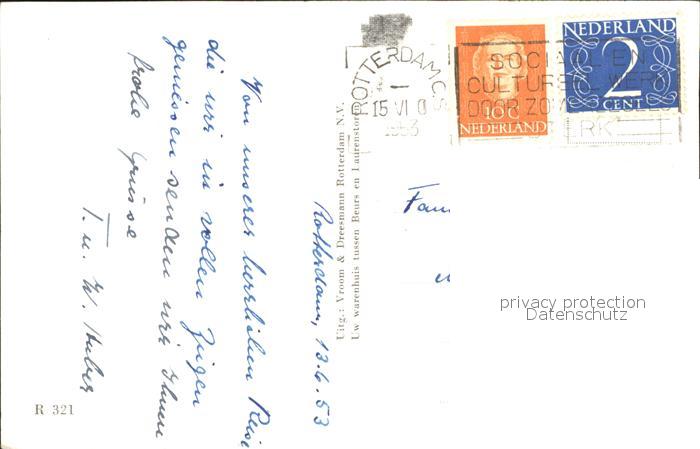 Rotterdam, 13.6.53
Von unserer herrlichen Reise
die wir in vollen Zügen
geniessen senden wir Ihnen
frohe Grüsse
T. u. W. Huber
R 321
Uitg.: Vroom & Dreesmann Rotterdam N.V.
Uw warenhuis tussen Beurs en Laurenstoren
ROTTERDAM C.S.
15 VI
1953
SOCIAAL EN
CULTUREEL WERK
DOOR
10 c
NEDERLAND
NEDERLAND
2
CENT
Fam
privacy protection
Datenschutz